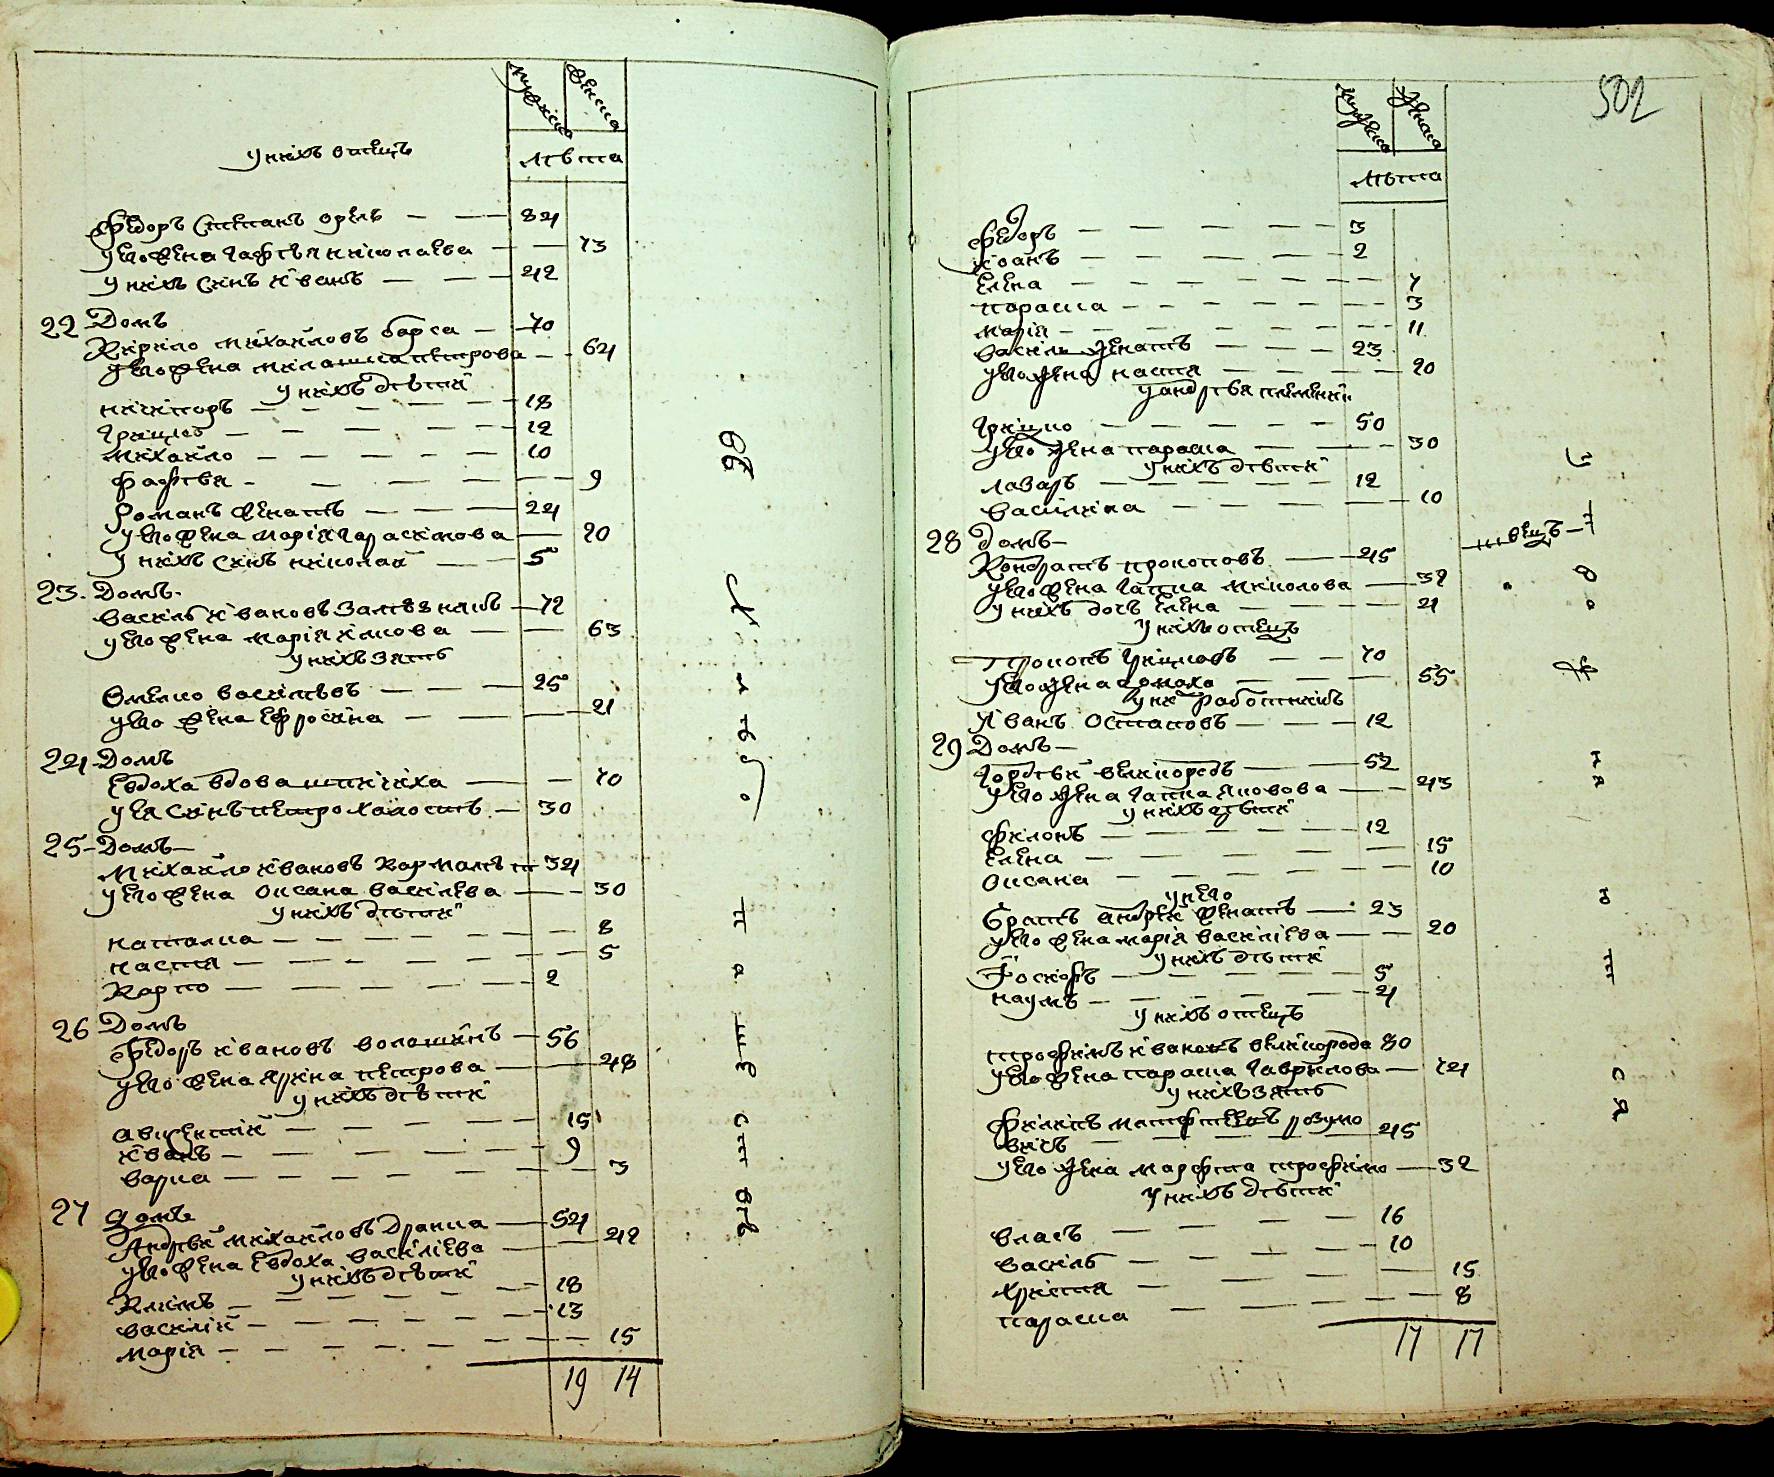 мужеска женска
лѣта
у нихъ отецъ
Федоръ Степанъ орелъ 84
у его жена Гафѣя николаева 73
у нихъ синъ йванъ 42
22 Домъ
Кирило михайловъ барса 70
у его жена мелашка петрова 64
у нихъ дѣтей
никипоръ 18
Грицко 12
михайло 10
9
романъ женатъ 24
у его жена марія Гарасимова 20
у нихъ синъ николай 5
23 Домъ
василь йвановъ 72
у его жена марія 63
у нихъ зять
Омелко василѣвъ 25
у его жена ефросина 21
24 Домъ
Евдоха вдова 70
у ея синъ петро холостъ 30
25 Домъ
михайло йвановъ 34
у его жена оксана василева 30
у нихъ дѣтей
наталка 8
настя 5
карпо 2
26 Домъ
федоръ йвановъ волошинъ 56
у его жена ярина петрова 48
у нихъ дѣтей
авксентій 15
йванъ 9
варка 3
27 домъ
Андрѣй михайловъ Драпка 54
у его жена Евдоха василіева 42
у нихъ дѣтей
Климъ 18
василій 13
марія 15
19 14
502
мужеска женска
лѣта
федоръ 3
йоанъ 2
елена 7
параска 3
марія 11
василь женатъ 23
у его жена настя 20
у андрѣя
Грицко 50
у его жена параска 30
у нихъ дѣтей
лазаръ 12
василина 10
28 Домъ
Кондратъ прокоповъ швецъ 45
у его жена Гапка миколова 32
у нихъ дочъ елена 4
у нихъ отецъ
Прокопъ Грицковъ 70
у его жена домаха 55
у ней работникъ
Йванъ Остаповъ 12
29 Домъ
Гордѣй 52
у его жена Гапка яковова 43
у нихъ дѣтей
филонъ 12
елена 15
оксана 10
у него
братъ андрей женатъ 23
у его жена марія василіева 20
у нихъ дѣтей
5
наумъ 4
у нихъ отецъ
трофимъ йвановъ 80
у его жена параска Гаврилова 74
у нихъ зять
филипъ 45
у его жена марфа трофимо 32
у нихъ дѣтей
власъ 16
василь 10
христя 15
параска 8
17 17